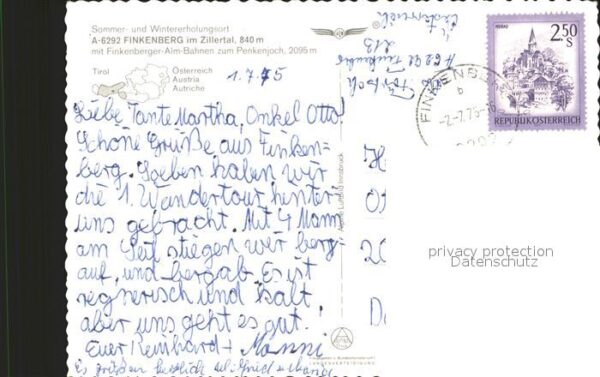 Sommer- und Wintererholungsort
A-6292 FINKENBERG im Zillertal, 840 m
mit Finkenberger-Alm-Bahnen zum Penkenjoch, 2095 m
Tirol
Österreich
Austria
Autriche
1.7.75
Liebe Tante Martha, Onkel Otto!
Schöne Grüße aus Finken-
berg. Soeben haben wir
die 1. Wandertour hinter
uns gebracht. Mit 4 Mann
am Seil stiegen wir berg-
auf, und bergab. Es ist
regnerisch und kalt
aber uns geht es gut.
Euer Reinhard + Manni
Es grüßen herzlich
Österreich
213
A 6292 Finkenberg
FINKENBERG
b
-2.-7.75-
2,50
S
MURAU
REPUBLIK ÖSTERREICH
Innsbruck
H
Ot
20
D
privacy protection
Datenschutz